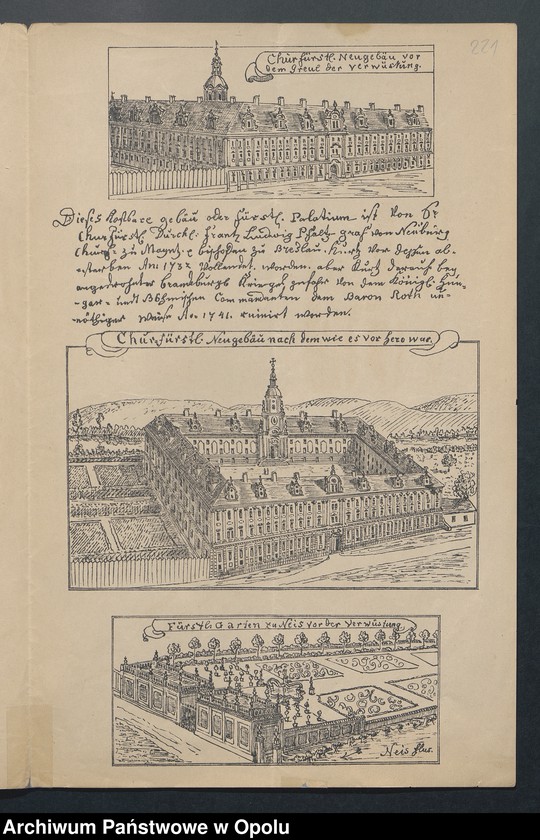 221
Churfürstl. Neugebäu vor
dem Greul der Verwüstung.
Dieses kostbare gebäu oder Fürstl. Palatium ist von Sr
Churfürstl. Durchl. Frantz Ludwig Pfaltz-graf von Neuburg
Churf. zu Mayntz, bischofen zu Breslau. Kurtz vor dessen ab-
-sterben Ao. 1732 Vollendet worden. aber Kurtz darauf bey
angedrohter brandburgs Kriegs gefahr von dem Königl. Hun-
-gar- und Böhmischen Commendanten dem Baron Roth un-
-nöthiger weise Ao. 1741. ruinirt worden.
Churfürstl. Neugebäu nach dem wie es vor hero war.
Fürstl. Garten zu Neis vor der Verwüstung
Neis flus.
Archiwum Państwowe w Opolu